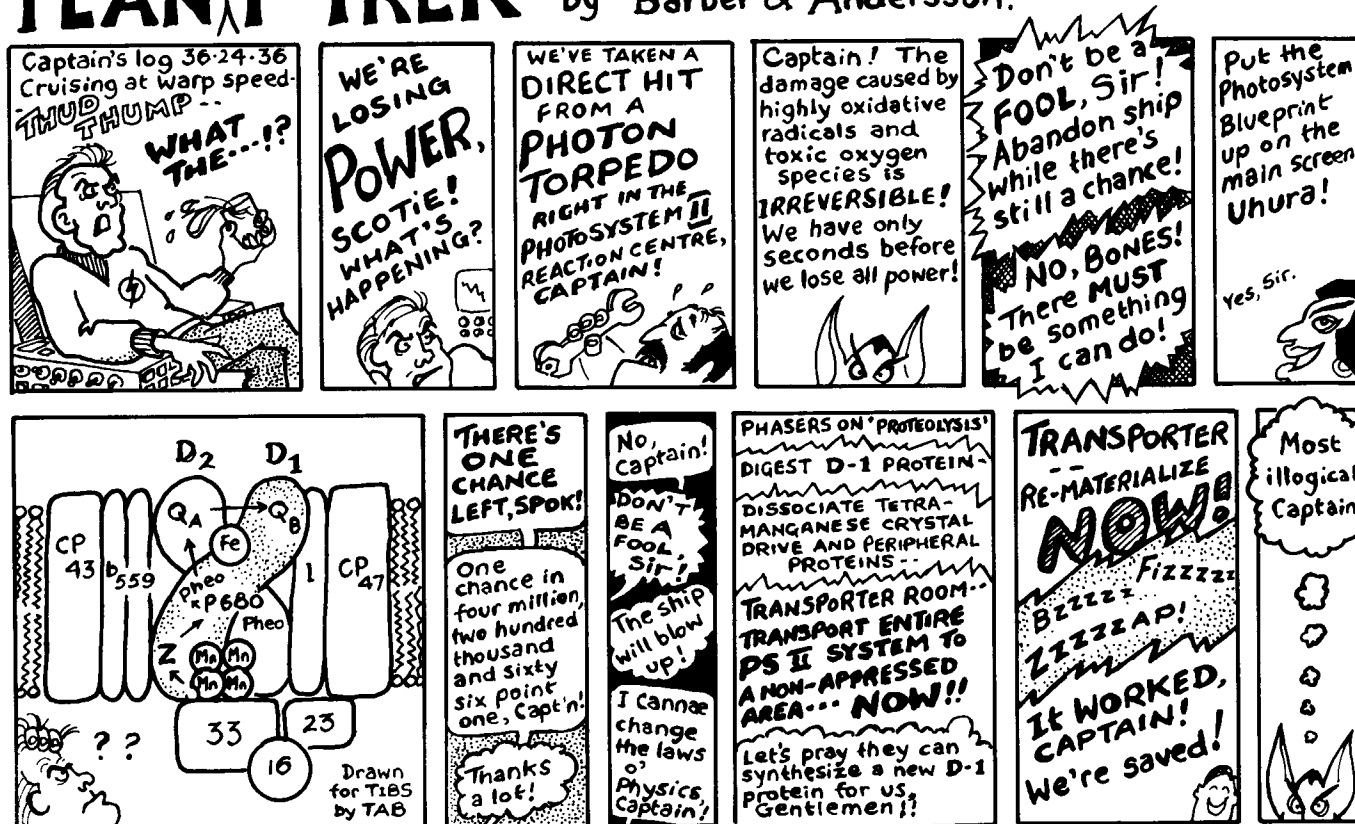 PLANT TREK by Barber & Andersson.
Captain's log 36-24-36
Cruising at warp speed-
-THUD THUMP--
WHAT
THE---!?
WE'RE
LOSING
POWER,
SCOTIE!
WHAT'S
HAPPENING?
WE'VE TAKEN A
DIRECT HIT
FROM A
PHOTON
TORPEDO
RIGHT IN THE
PHOTOSYSTEM II
REACTION CENTRE,
CAPTAIN!
Captain! The
damage caused by
highly oxidative
radicals and
toxic oxygen
species is
IRREVERSIBLE!
We have only
seconds before
we lose all power!
Don't be a
FOOL, Sir!
Abandon ship
while there's
still a chance!
NO, BONES!
There MUST
be something
I can do!
Put the
Photosystem
Blueprint
up on the
main screen
Uhura!
Yes, Sir.
D2 D1
QA QB
Fe
CP
43
b559
Pheo
P680
Pheo
I
CP
47
Z
Mn Mn
Mn Mn
33
23
16
? ?
Drawn
for TIBS
by TAB
THERE'S
ONE
CHANCE
LEFT, SPOK!
One
chance in
four million,
two hundred
thousand
and sixty
six point
one, Capt'n!
Thanks
a lot!
No,
Captain!
DON'T
BE A
FOOL,
Sir!
The ship
will blow
up!
I cannae
change
the laws
o'
Physics,
Captain!
PHASERS ON 'PROTEOLYSIS'
DIGEST D-1 PROTEIN-
DISSOCIATE TETRA-
MANGANESE CRYSTAL
DRIVE AND PERIPHERAL
PROTEINS--
TRANSPORTER ROOM--
TRANSPORT ENTIRE
PS II SYSTEM TO
A NON-APPRESSED
AREA--- NOW!!
Let's pray they can
synthesize a new D-1
protein for us,
Gentlemen!?
TRANSPORTER
--
RE-MATERIALIZE
NOW!
Fizzzzz
Bzzzzz
ZZZZZAP!
It WORKED,
CAPTAIN!
We're saved!
Most
illogical
Captain